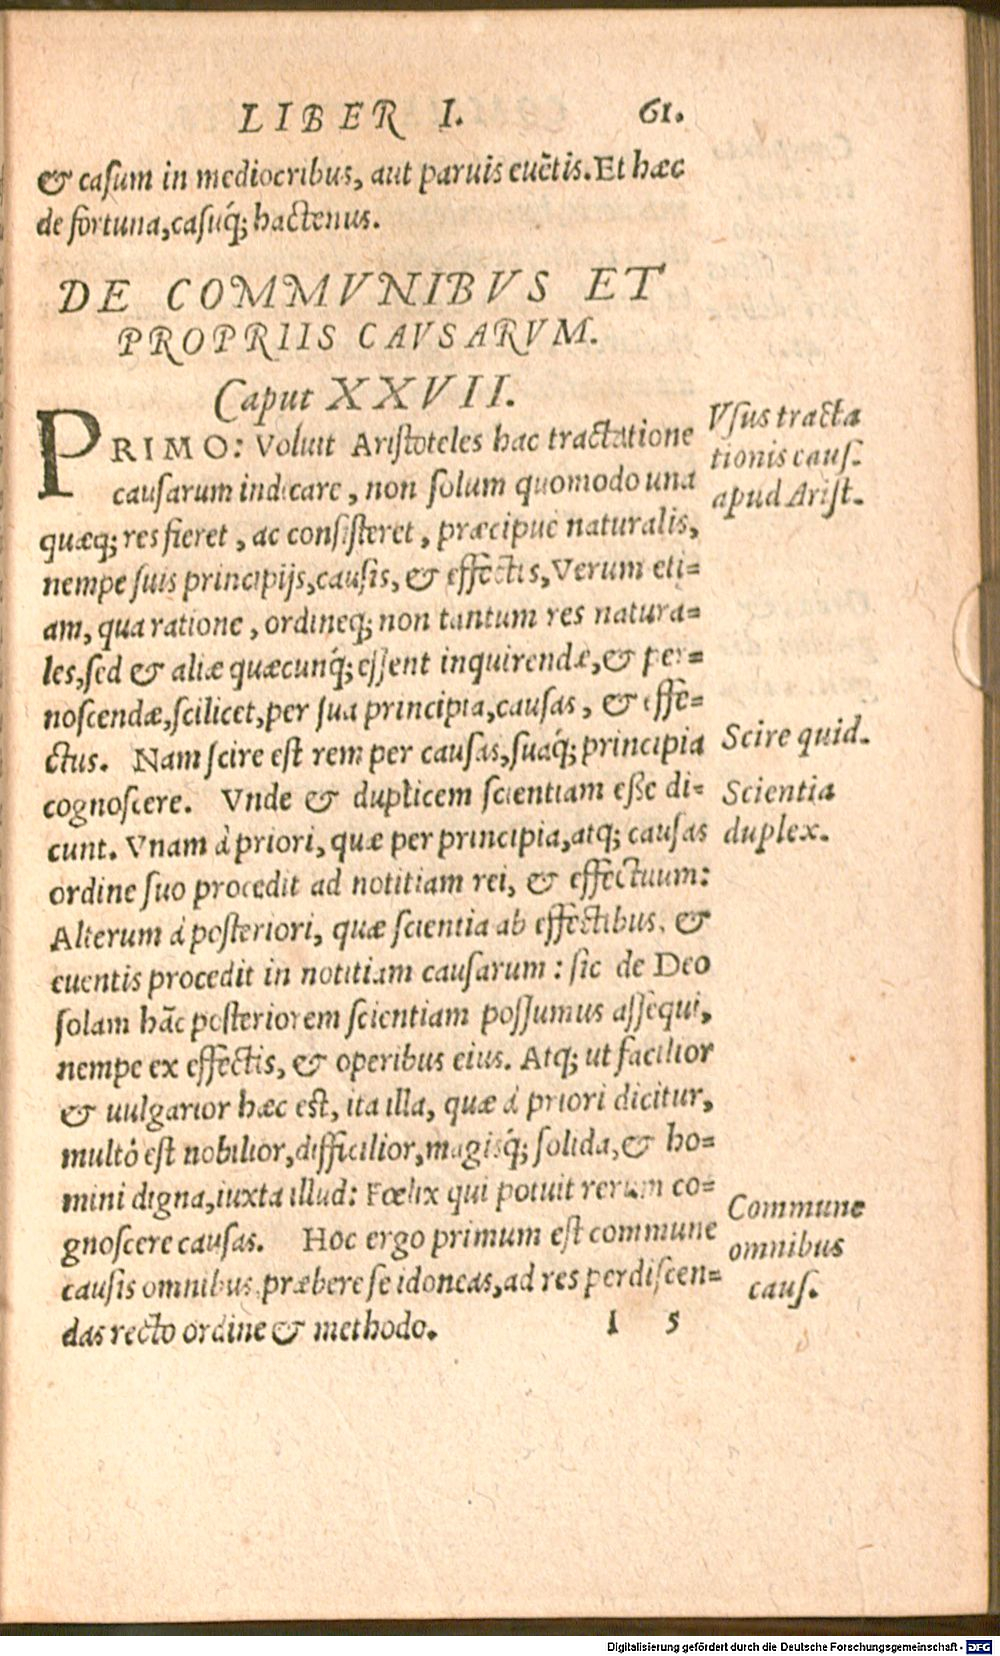 LIBER I. 61.
& casum in mediocribus, aut paruis euẽtis. Et hæc
de fortuna, casuq́; hactenus.
DE COMMVNIBVS ET
PROPRIIS CAVSARVM.
Caput XXVII.
PRIMO: Voluit Aristoteles hac tractatione
causarum indicare, non solum quomodo una
quæq; res fieret, ac consisteret, præcipuè naturalis,
nempe suis principijs, causis, & effectis, Verum eti=
am, qua ratione, ordineq; non tantum res natura=
les, sed & aliæ quæcunq́; essent inquirendæ, & per=
noscendæ, scilicet, per sua principia, causas, & effe=
ctus. Nam scire est rem per causas, suaq́; principia
cognoscere. Vnde & duplicem scientiam esse di=
cunt. Vnam à priori, quæ per principia, atq; causas
ordine suo procedit ad notitiam rei, & effectuum:
Alterum à posteriori, quæ scientia ab effectibus, &
euentis procedit in notitiam causarum: sic de Deo
solam hãc posteriorem scientiam possumus assequi,
nempe ex effectis, & operibus eius. Atq; ut facilior
& uulgarior hæc est, ita illa, quæ à priori dicitur,
multò est nobilior, difficilior, magisq́; solida, & ho=
mini digna, iuxta illud: Fœlix qui potuit rerum co=
gnoscere causas. Hoc ergo primum est commune
causis omnibus, præbere se idoneas, ad res perdiscen=
das recto ordine & methodo.
I 5
Vsus tracta
tionis caus.
apud Arist.
Scire quid.
Scientia
duplex.
Commune
omnibus
caus.
Digitalisierung gefördert durch die Deutsche Forschungsgemeinschaft - DFG